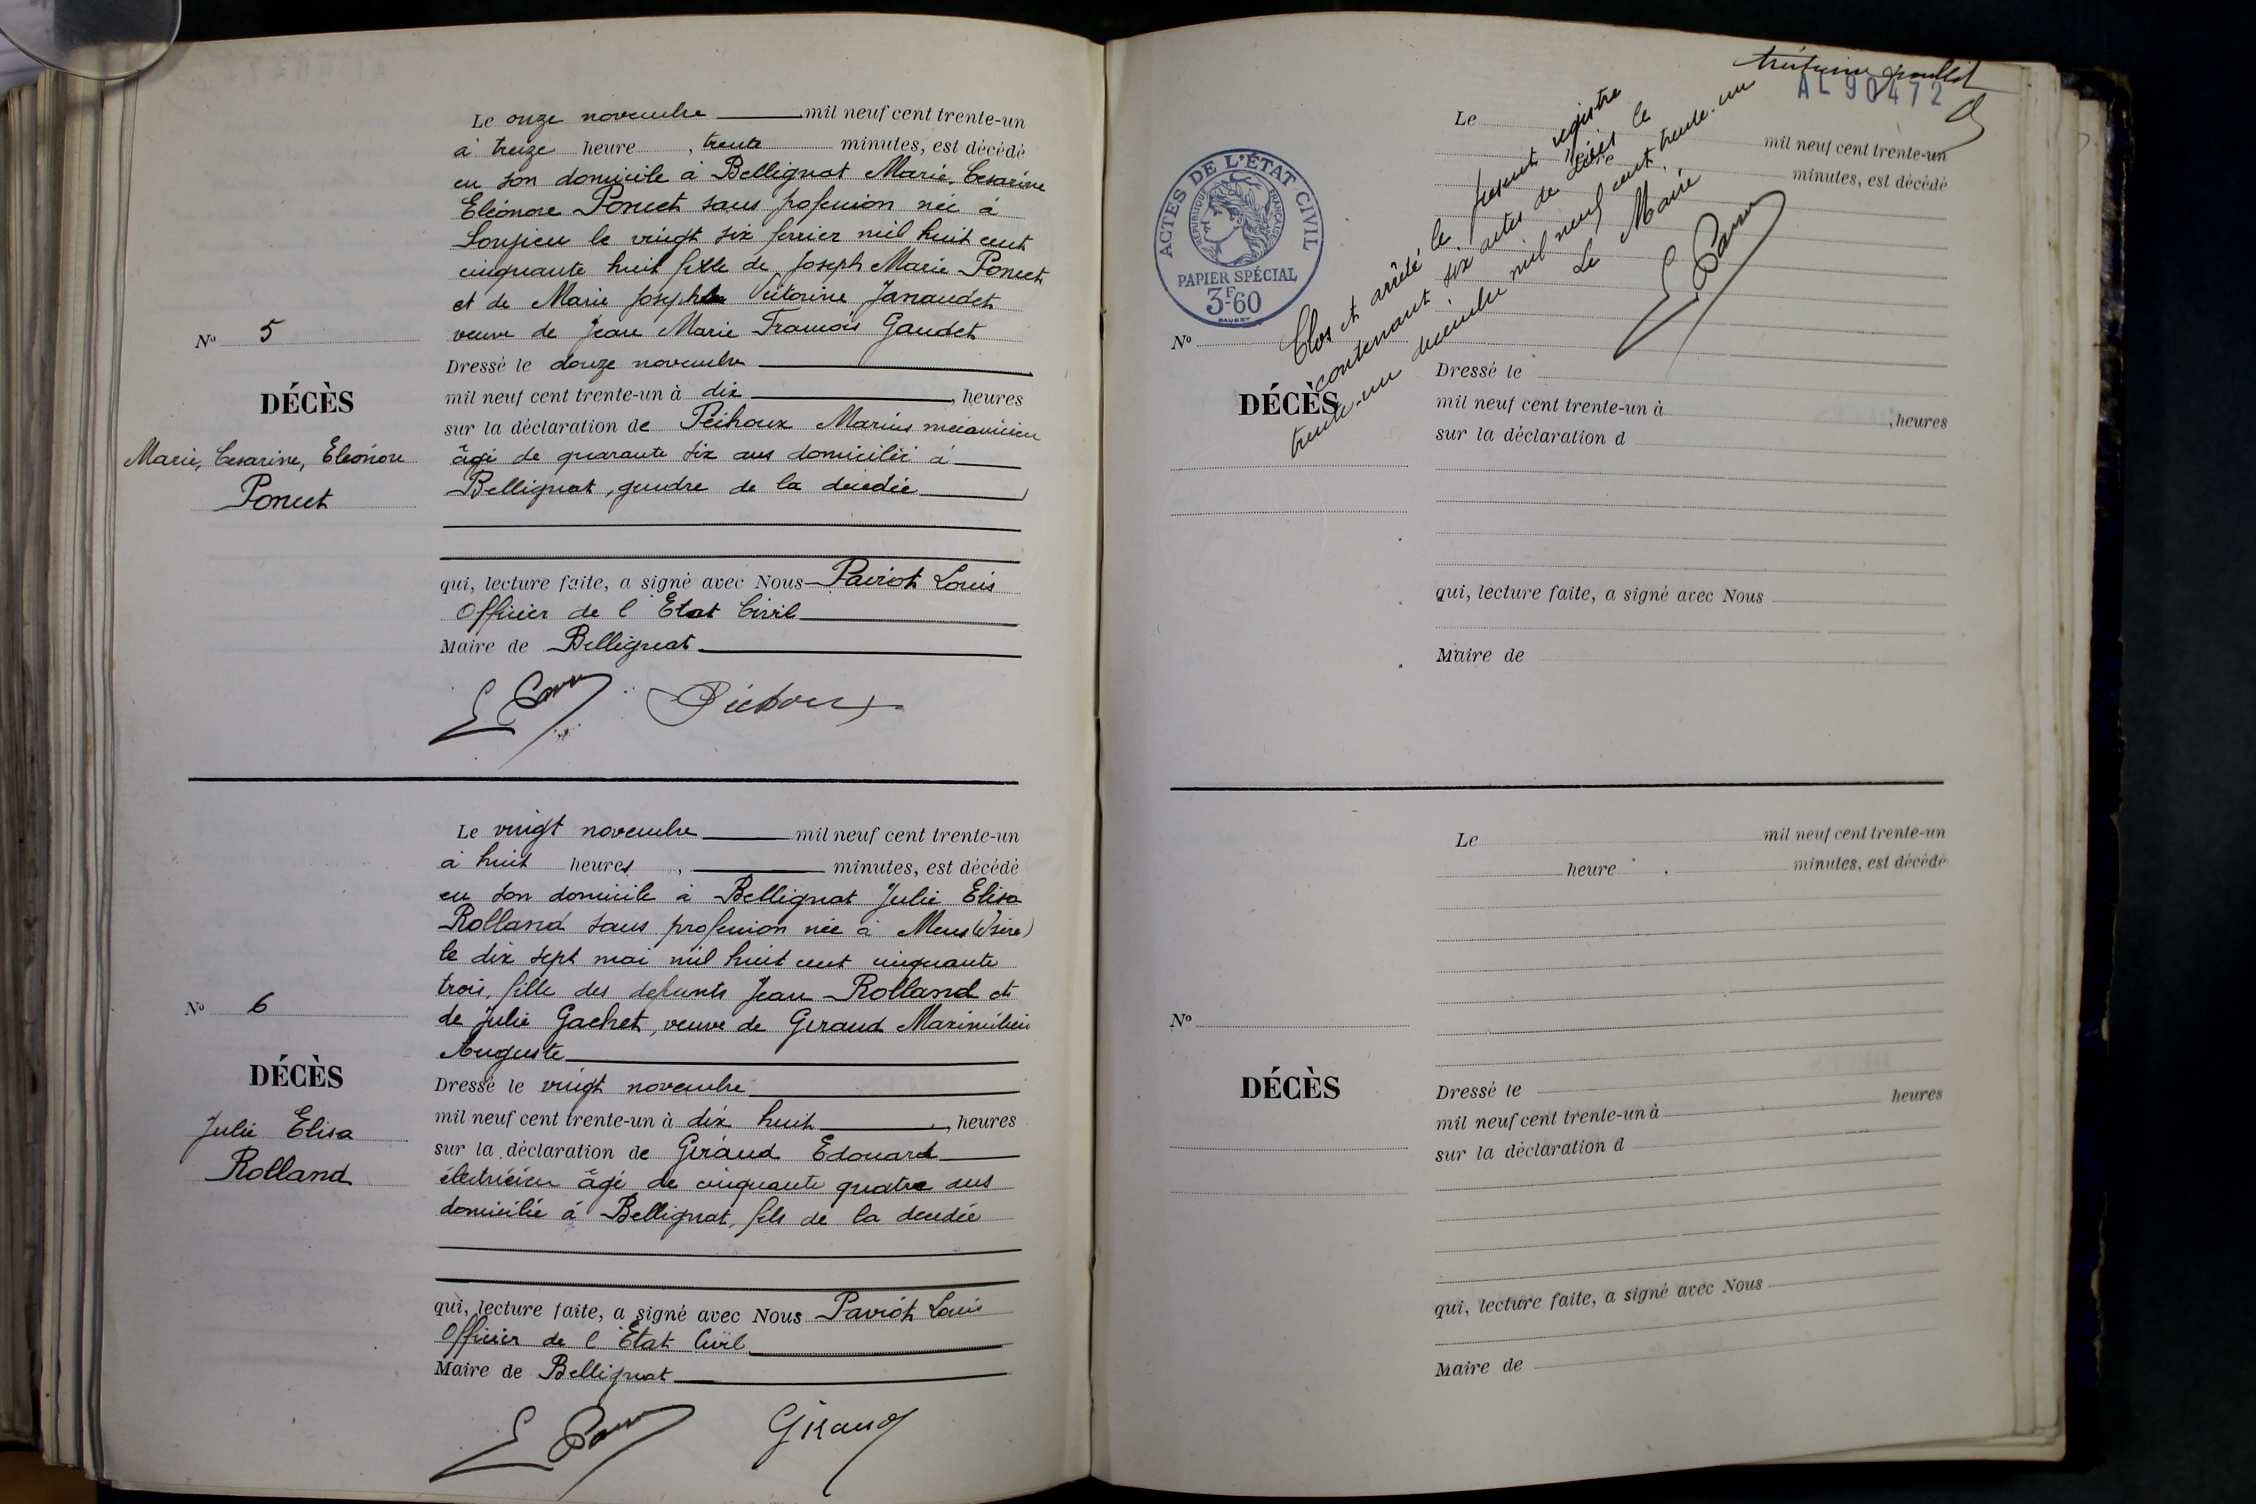 Le onze novembre mil neuf cent trente-un
à treize heure, trente minutes, est décédé
en son domicile à Bellignat Marie, Cesarine
Eléonore Poncet sans profession née à
le vingt six ferrier mil huit cent
cinquante huit fille de Joseph Marie Poncet
et de Marie Josephte Victorine Janaudet
veuve de Jean Marie François Gaudet
Nº 5
Dressé le douze novembre
DÉCÈS
mil neuf cent trente-un à dix, heures
sur la déclaration de Marius mécanicien
Marie, Cesarine, Eléonore
âgé de quarante six ans domicilié à
Poncet
Bellignat, gendre de la décédée
qui, lecture faite, a signé avec Nous Paviot Louis
Officier de l'Etat Civil
Maire de Bellignat
Le vingt novembre mil neuf cent trente-un
à huit heures, minutes, est décédé
en son domicile à Bellignat Julie Elisa
Rolland sans profession née à Mens (Isère)
le dix sept mai mil huit cent cinquante
trois, fille des defunts Jean Rolland et
Nº 6
de Julie Gachet, veuve de Geraud Maximilien
Auguste
DÉCÈS
Dressé le vingt novembre
mil neuf cent trente-un à dix huit, heures
Julie Elisa
sur la déclaration de Géraud Edouard
Rolland
électricien âgé de cinquante quatre ans
domicilié à Bellignat, fils de la décédée
qui, lecture faite, a signé avec Nous Paviot Louis
Officier de l'Etat Civil
Maire de Bellignat
Giraud
AL 90472
Le mil neuf cent trente-un
heure minutes, est décédé
ACTES DE L'ÉTAT CIVIL
RÉPUBLIQUE FRANÇAISE
PAPIER SPÉCIAL
3F60
Clos et arrêté le présent registre
contenant six actes de décès le
trente-un décembre mil neuf cent trente-un
Le Maire
Nº
DÉCÈS
Dressé le
mil neuf cent trente-un à, heures
sur la déclaration d
qui, lecture faite, a signé avec Nous
Maire de
Le mil neuf cent trente-un
heure, minutes, est décédé
Nº
DÉCÈS
Dressé le
mil neuf cent trente-un à heures
sur la déclaration d
qui, lecture faite, a signé avec Nous
Maire de